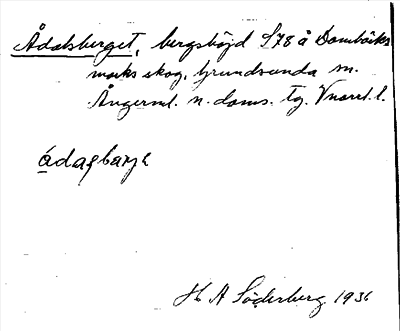 Ådalsberget, bergshöjd S78 å Dombäcks
marks skog, Grundsunda sn.
Ångerml. n. doms. tg. Vnorrl. l.
ádalbarjə
H A Söderberg 1936